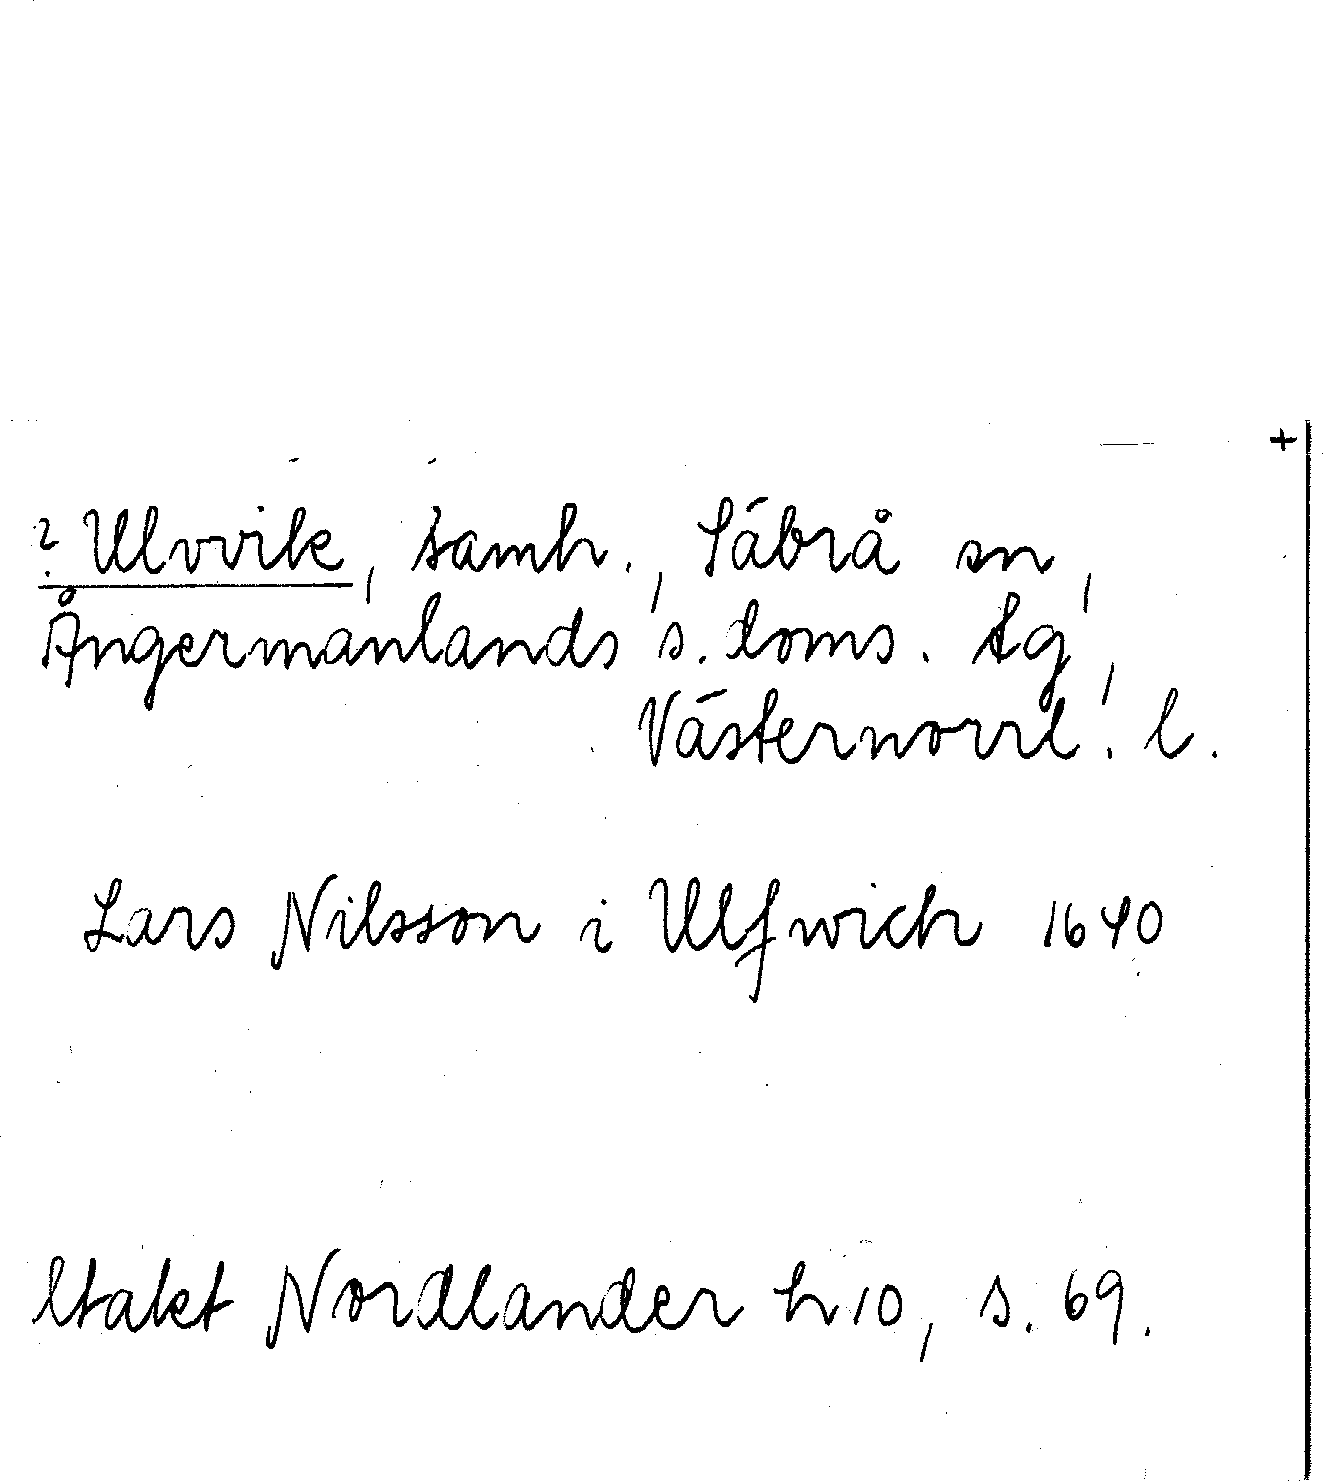 +
? Ulvvik, samh., Säbrå sn,
Ångermanlands s. doms. tg,
Västernorrl. l.
Lars Nilsson i Ulfwich 1640
Utakt Nordlander h 10, s. 69.